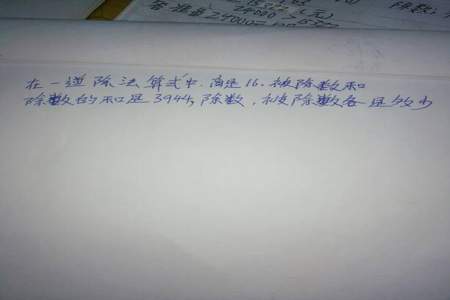 答准备24000
(元)
在一道除法算式中.商是16.被除数和
除数的和是3944,除数.被除数各是多少